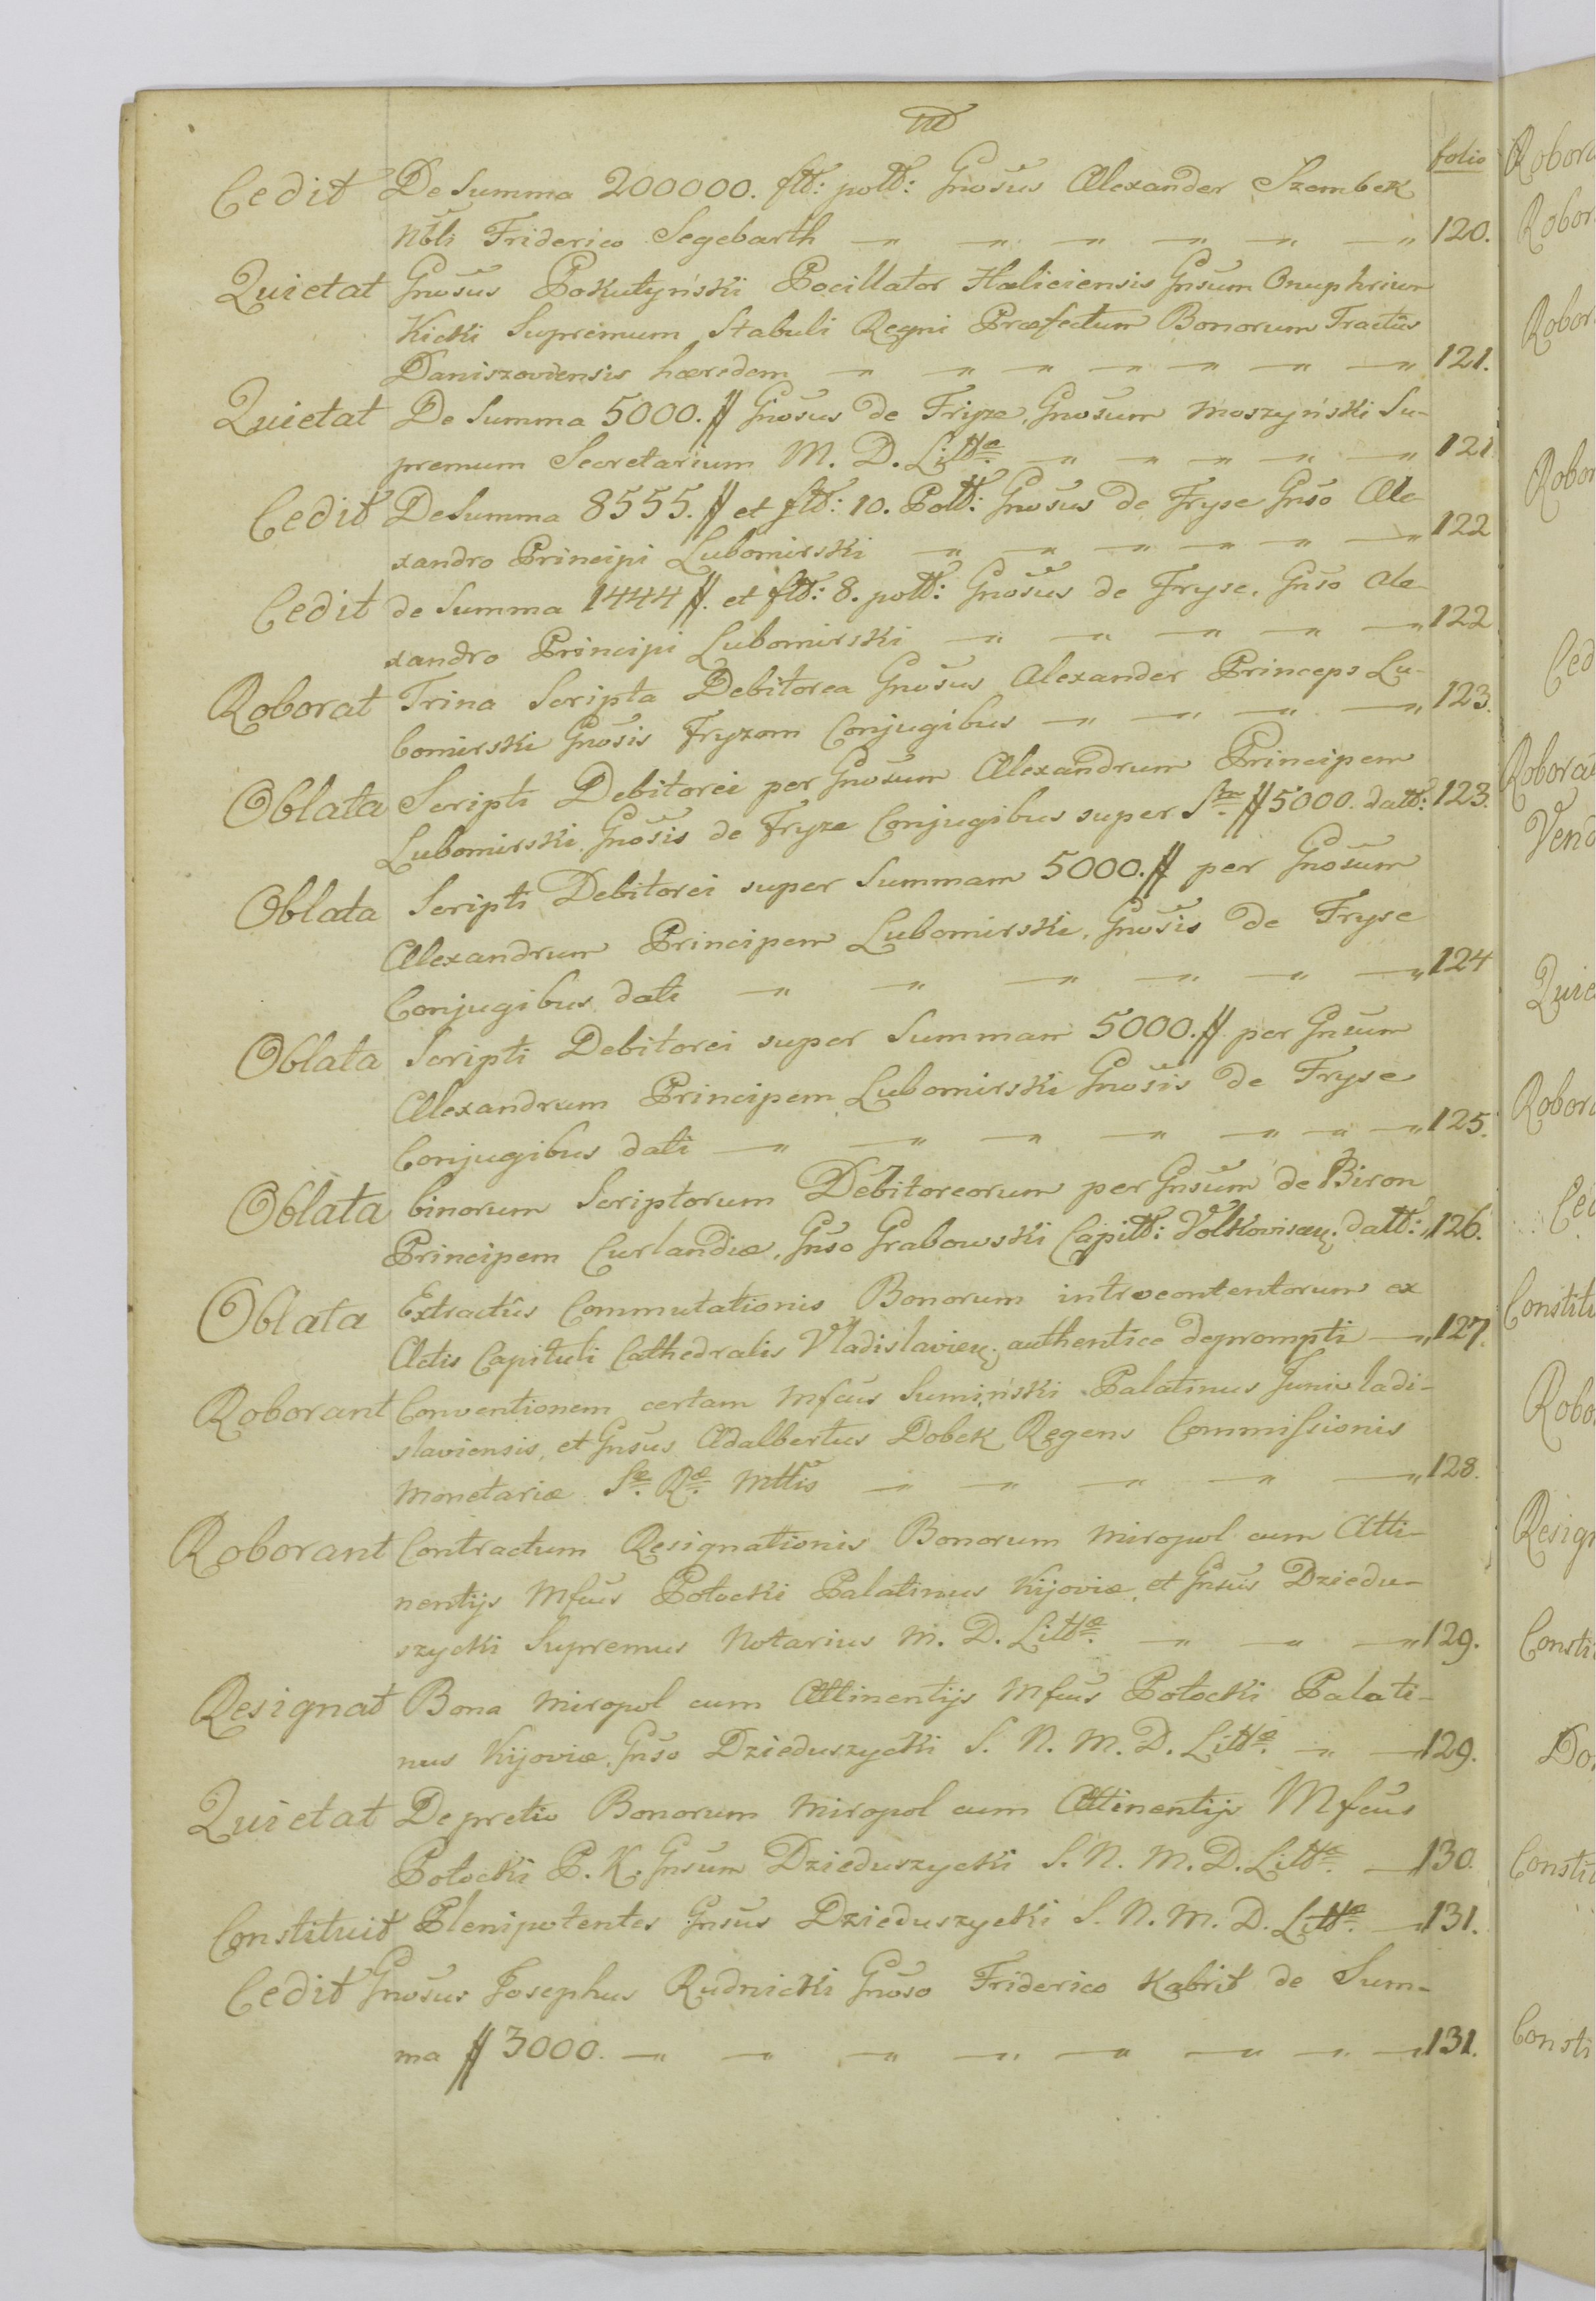 folio
Cedit De Summa 200000. fltt: poltt: Gnosus Alexander Szembek
Nbli Friderico Segebarth — — — — — — 120.
Quietat Gnosus Pokutyński Pocillator Haliciensis Gnsum Onuphrium
Kicki Supremum Stabuli Regni Præfectum Bonorum Tractûs
Daniszoviensis hæredem — — — — — — — 121.
Quietat De Summa 5000. # Gnosus de Fryze, Gnosum Moszyński Su-
premum Secretarium M. D. Littæ — — — — — 121
Cedit De Summa 8555. # et fltt: 10. Poltt: Gnosus de Fryse Gnso Ale-
xandro Principi Lubomirski — — — — — — 122
Cedit de Summa 1444 #. et fltt: 8. poltt: Gnosus de Fryse, Gnso Ale-
xandro Principi Lubomirski — — — — — 122
Roborat Trina Scripta Debitorea Gnosus Alexander Princeps Lu-
bomirski Gnosis Fryzom Conjugibus — — — — 123.
Oblata Scripti Debitorei per Gnosum Alexandrum Principem
Lubomirski, Gnosis de Fryze Conjugibus super Sm̄ # 5000. datt: 123.
Oblata Scripti Debitorei super Summam 5000. # per Gnosum
Alexandrum Principem Lubomirski, Gnosis de Fryse
Conjugibus dati — — — — — — 124
Oblata Scripti Debitorei super Summam 5000. # per Gnsum
Alexandrum Principem Lubomirski Gnosis de Fryse
Conjugibus dati — — — — — — — 125.
Oblata binorum Scriptorum Debitoreorum per Gnsum de Biron
Principem Curlandiæ, Gnso Grabowski Capitt: Volkovisceń: datt: 126.
Oblata Extractûs Commutationis Bonorum introcontentorum ex
Actis Capituli Cathedralis Vladislavień: authentice depromp­ti — 127.
Roborant Conventionem certam Mfcus Sumiński Palatinus Junivladi-
slaviensis, et Gnsus Adalbertus Dobek Regens Commissionis
Monetariæ Sæ Ræ Mttis — — — — — 128.
Roborant Contractum Resignationis Bonorum Miropol cum Atti-
nentijs Mfcus Potocki Palatinus Kijoviæ, et Gnsus Dziedu-
szycki Supremus Notarius M. D. Littæ — — — 129.
Resignat Bona Miropol cum Attinentijs Mfcus Potocki Palati-
nus Kijoviæ, Gnso Dzieduszycki S. N. M. D. Littæ — — 129.
Quietat De pretio Bonorum Miropol cum Attinentijs Mfcus
Potocki P. K. Gnsum Dzieduszycki S. N. M. D. Littæ — 130.
Constituit Plenipotentes Gnsus Dzieduszycki S. N. M. D. Littæ — 131.
Cedit Gnosus Josephus Rudnicki Gnoso Friderico Kabrit de Sum-
ma # 3000. — — — — — — — — 131.